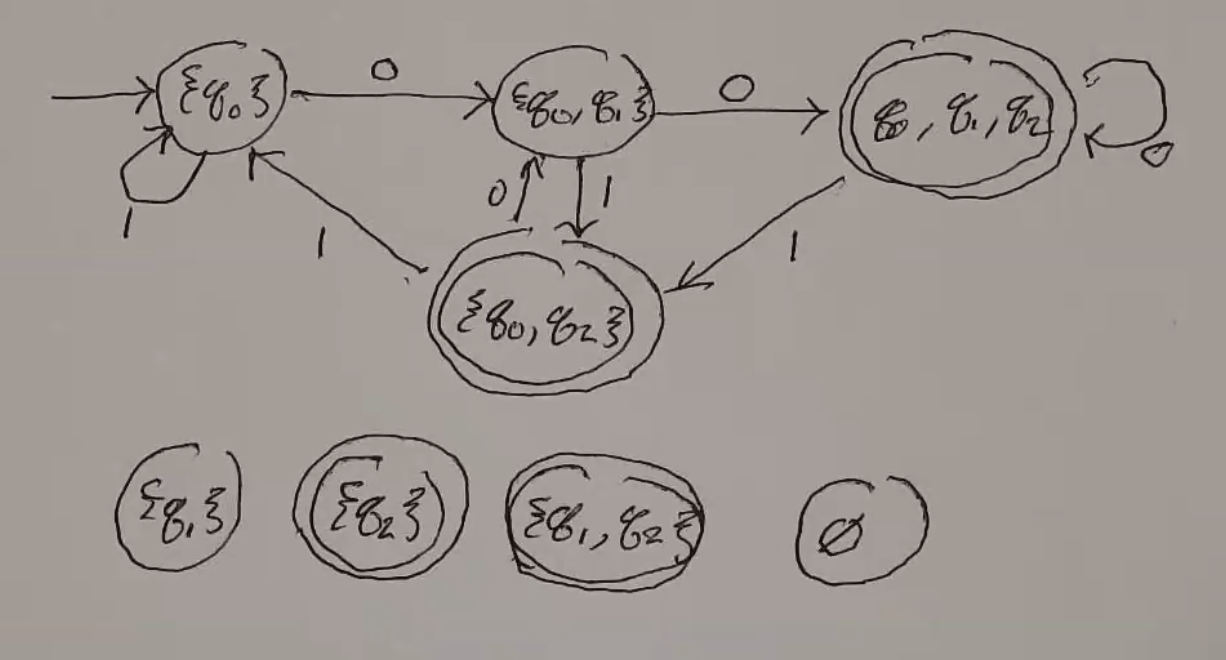 {q₀} 0 {q₀, q₁} 0 q₀, q₁, q₂ 0
1 1 0 1 1
{q₀, q₂}
{q₁} {q₂} {q₁, q₂} ∅